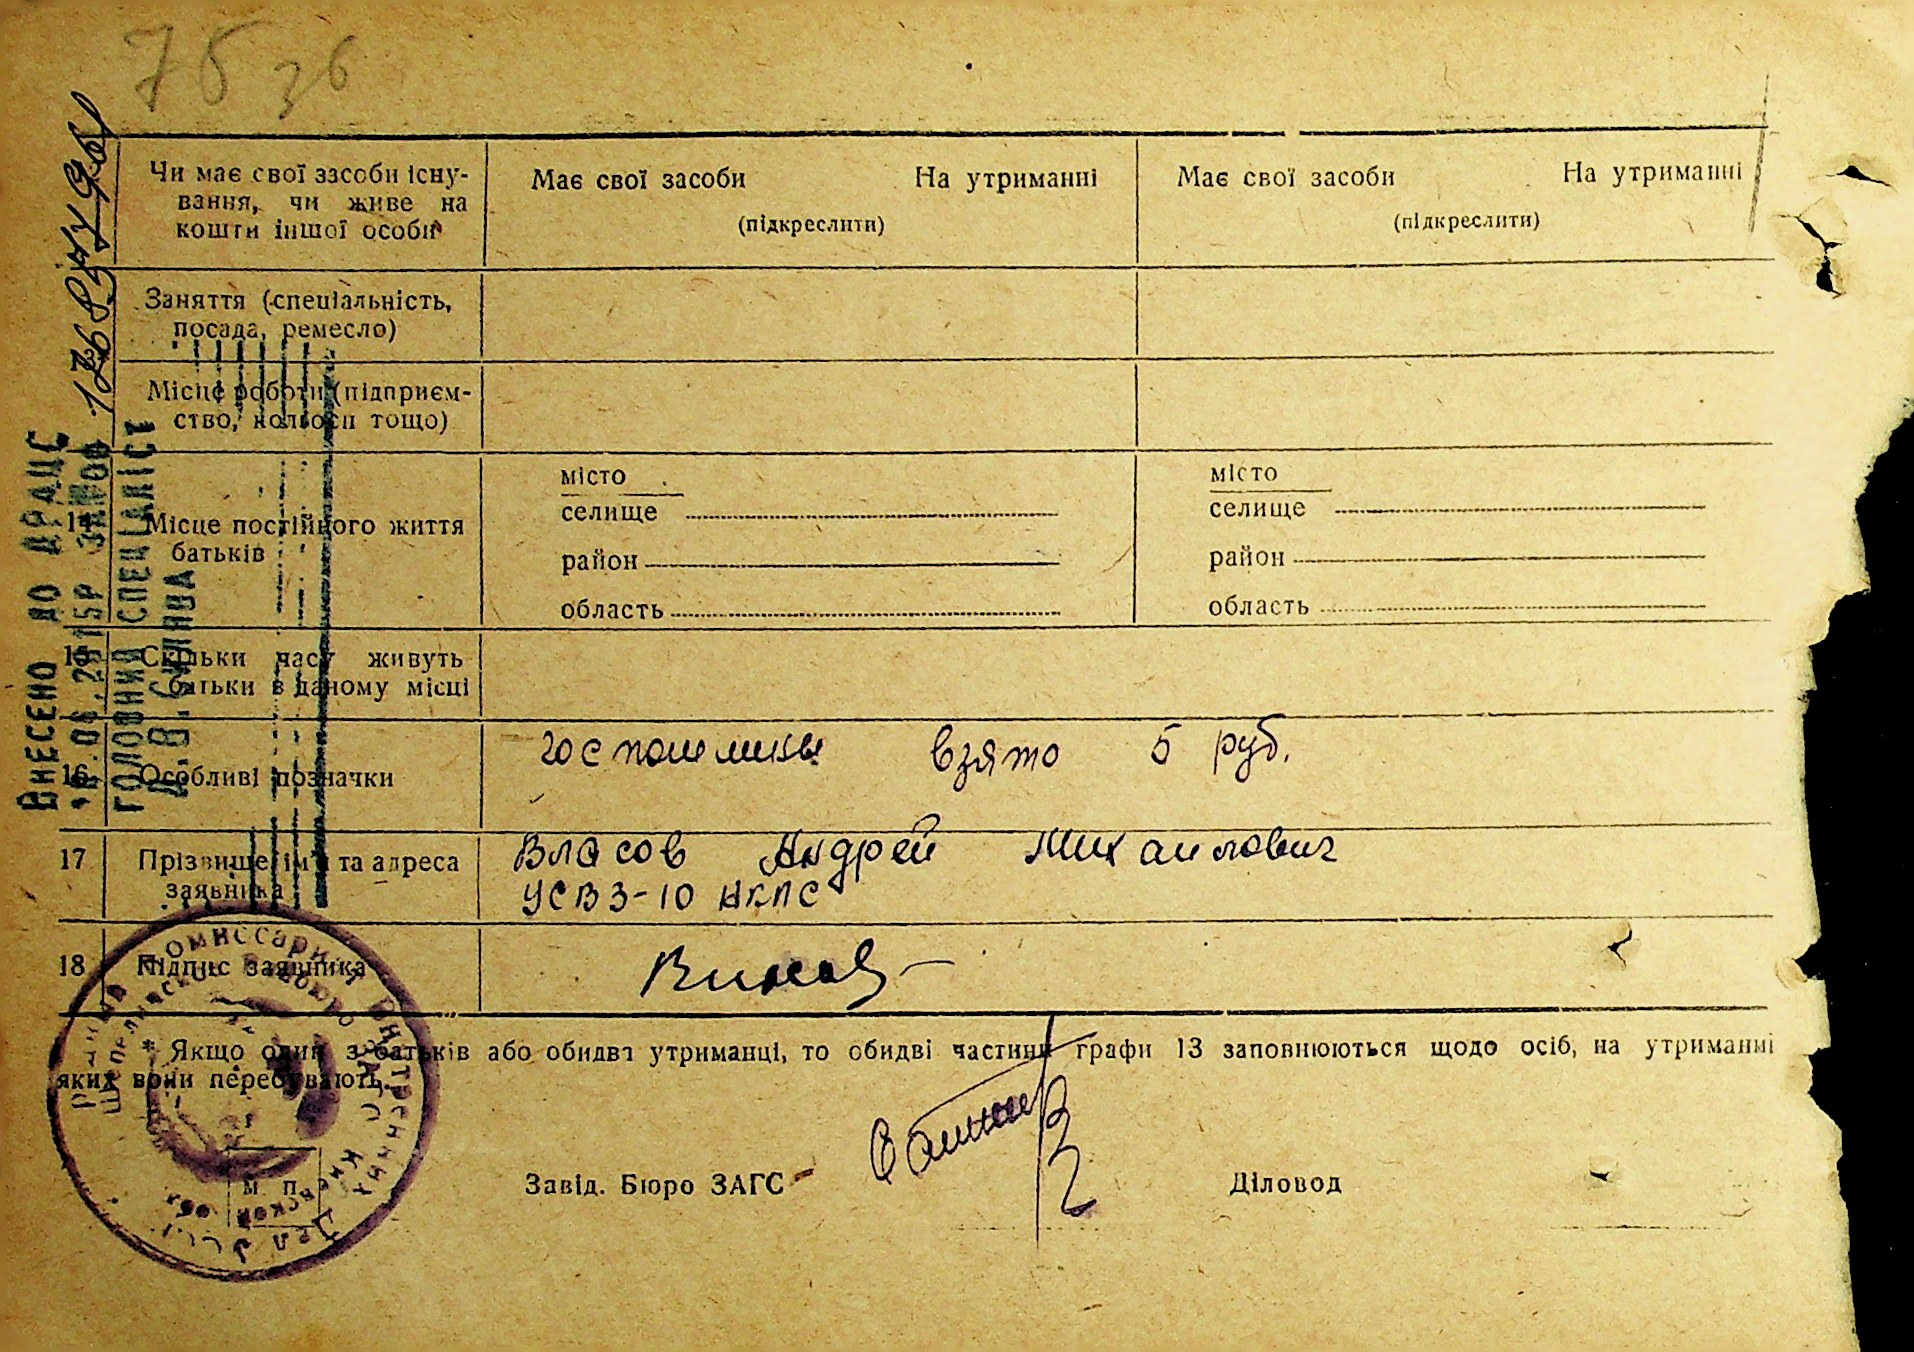 76 зв
Чи має свої засоби існу-
вання, чи живе на
кошти іншої особи
Має свої засоби На утриманні
(підкреслити)
Має свої засоби На утриманні
(підкреслити)
Заняття (спеціальність,
посада, ремесло)
Місце роботи (підприєм-
ство, колгосп тощо)
14 Місце постійного життя
батьків
місто
селище
район
область
місто
селище
район
область
15 Скільки часу живуть
батьки в даному місці
16 Особливі позначки
госпошлины взято 5 руб.
17 Прізвище, ім'я та адреса
заявника
Власов Андрей Михайлович
УСВЗ-10 НКПС
18 Підпис заявника
* Якщо один з батьків або обидва утриманці, то обидві частини графи 13 заповнюються щодо осіб, на утриманні
яких вони перебувають.
Завід. Бюро ЗАГС
Діловод
М. П.
ВНЕСЕНО ДО ДРАЦС
.06.2015Р ЗА №00
ГОЛОВНИЙ СПЕЦІАЛІСТ
Комиссариат Внутренних Дел
ЗАГС Киевской обл.